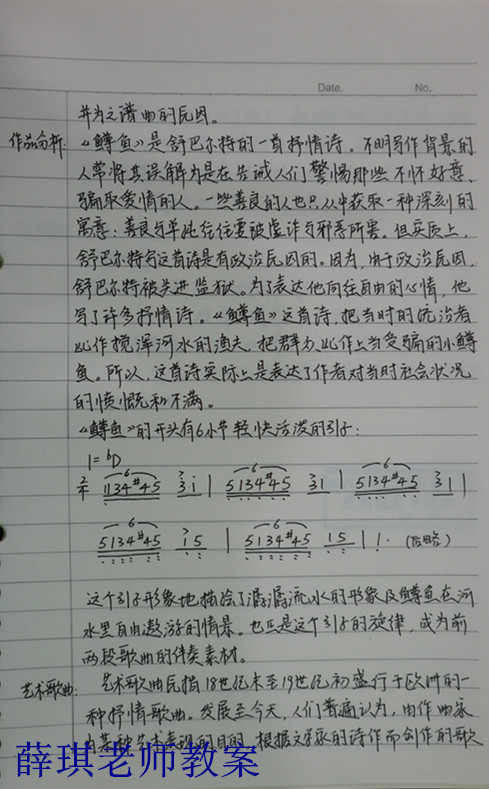 Date. No.
并为之谱曲的原因。
作品分析: 《鳟鱼》是舒巴尔特的一首抒情诗。不明写作背景的
人常将其误解为是在告诫人们警惕那些不怀好意、
骗取爱情的人。一些善良的人也只从中获取一种深刻的
寓意:善良与单纯往往要被虚诈与邪恶所害。但实质上,
舒巴尔特写这首诗是有政治原因的。因为,由于政治原因,
舒巴尔特被关进监狱。为了表达他向往自由的心情,他
写了许多抒情诗。《鳟鱼》这首诗,把当时的统治者
比作搅浑河水的渔夫,把群众比作上当受骗的小鳟
鱼。所以,这首诗实际上是表达了作者对当时社会状况
的愤慨和不满。
《鳟鱼》的开头有6小节轻快活泼的引子:
1=ᵇD
2/4 1134#45 3 1 | 5134#45 3 1 | 5134#45 3 1 |
5134#45 1 5 | 5134#45 1 5 | 1. (后略)
这个引子形象地描绘了潺潺流水的形象及鳟鱼在河
水里自由遨游的情景。也正是这个引子的旋律,成为前
两段歌曲的伴奏素材。
艺术歌曲: 艺术歌曲原指18世纪末至19世纪初盛行于欧洲的一
种抒情歌曲。发展至今天,人们普遍认为,由作曲家
为某种艺术表现的目的,根据文学家的诗作而创作的歌
薛琪老师教案